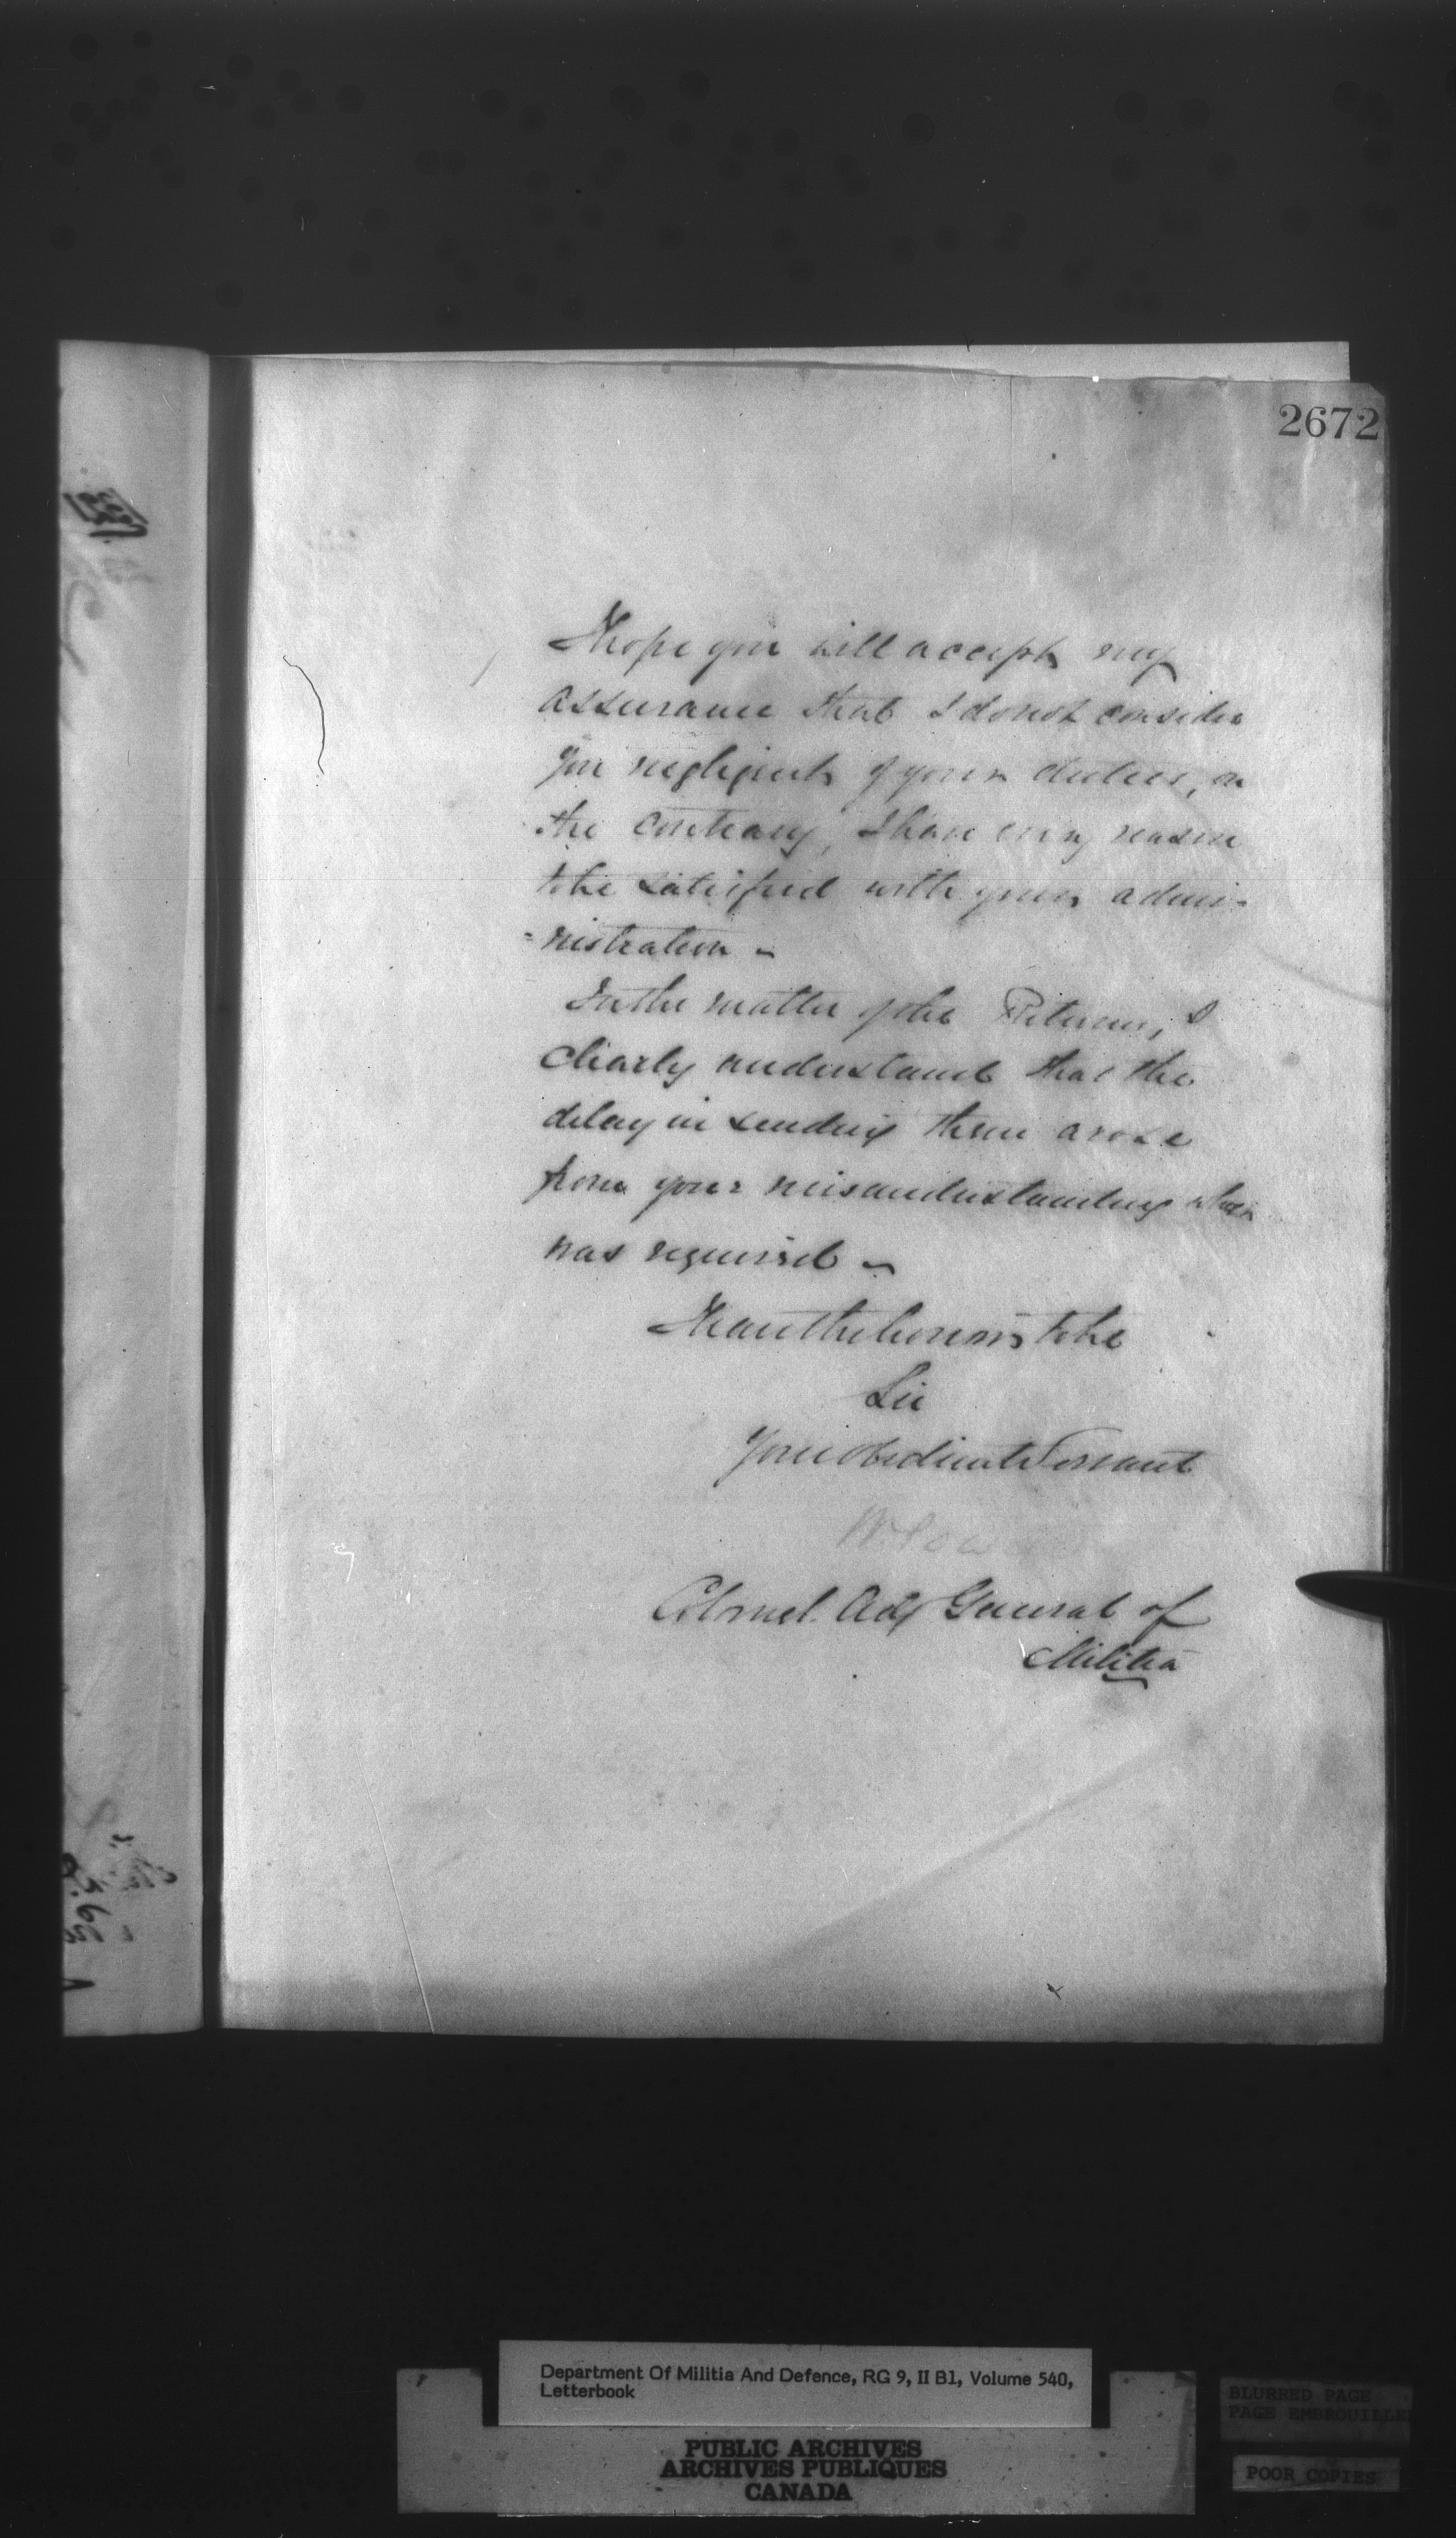 2672
I hope you will accept my
assurance that I do not consider
you negligent of your duties, on
the contrary, I have every reason
to be satisfied with your admi-
-nistration -
In the matter of the Returns, I
clearly understand that the
delay in sending them arose
from your misunderstanding what
was required -
I have the honor to be
Sir
Your obedient Servant
W Powell
Colonel. Adj General of
Militia
Department Of Militia And Defence, RG 9, II B1, Volume 540,
Letterbook
PUBLIC ARCHIVES
ARCHIVES PUBLIQUES
CANADA
BLURRED PAGE
PAGE EMBROUILLE
POOR COPIES